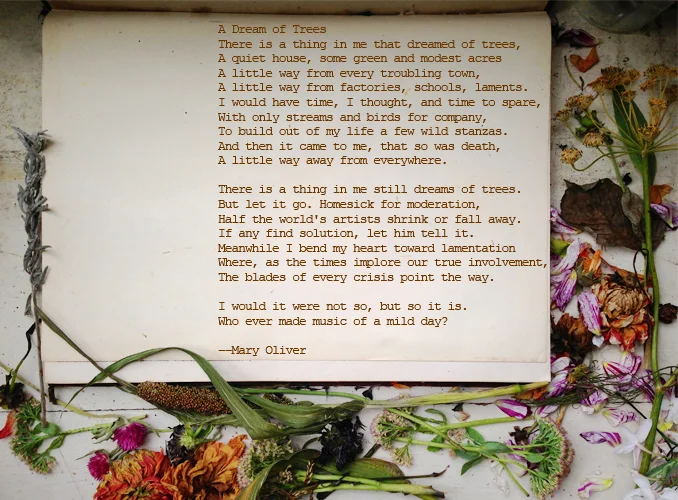 A Dream of Trees
There is a thing in me that dreamed of trees,
A quiet house, some green and modest acres
A little way from every troubling town,
A little way from factories, schools, laments.
I would have time, I thought, and time to spare,
With only streams and birds for company,
To build out of my life a few wild stanzas.
And then it came to me, that so was death,
A little way away from everywhere.

There is a thing in me still dreams of trees.
But let it go. Homesick for moderation,
Half the world's artists shrink or fall away.
If any find solution, let him tell it.
Meanwhile I bend my heart toward lamentation
Where, as the times implore our true involvement,
The blades of every crisis point the way.

I would it were not so, but so it is.
Who ever made music of a mild day?

––Mary Oliver